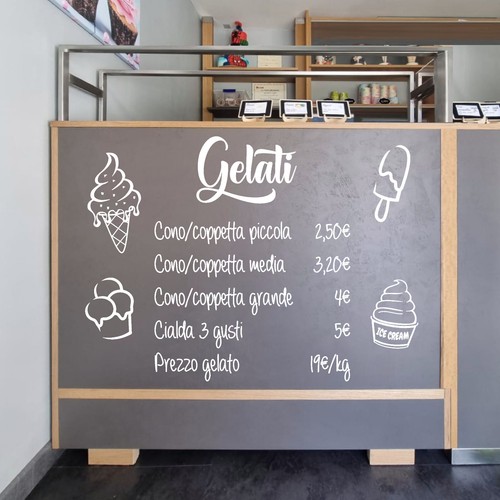 Gelati
Cono/coppetta piccola 2,50€
Cono/coppetta media 3,20€
Cono/coppetta grande 4€
Cialda 3 gusti 5€
Prezzo gelato 19€/kg
ICE CREAM